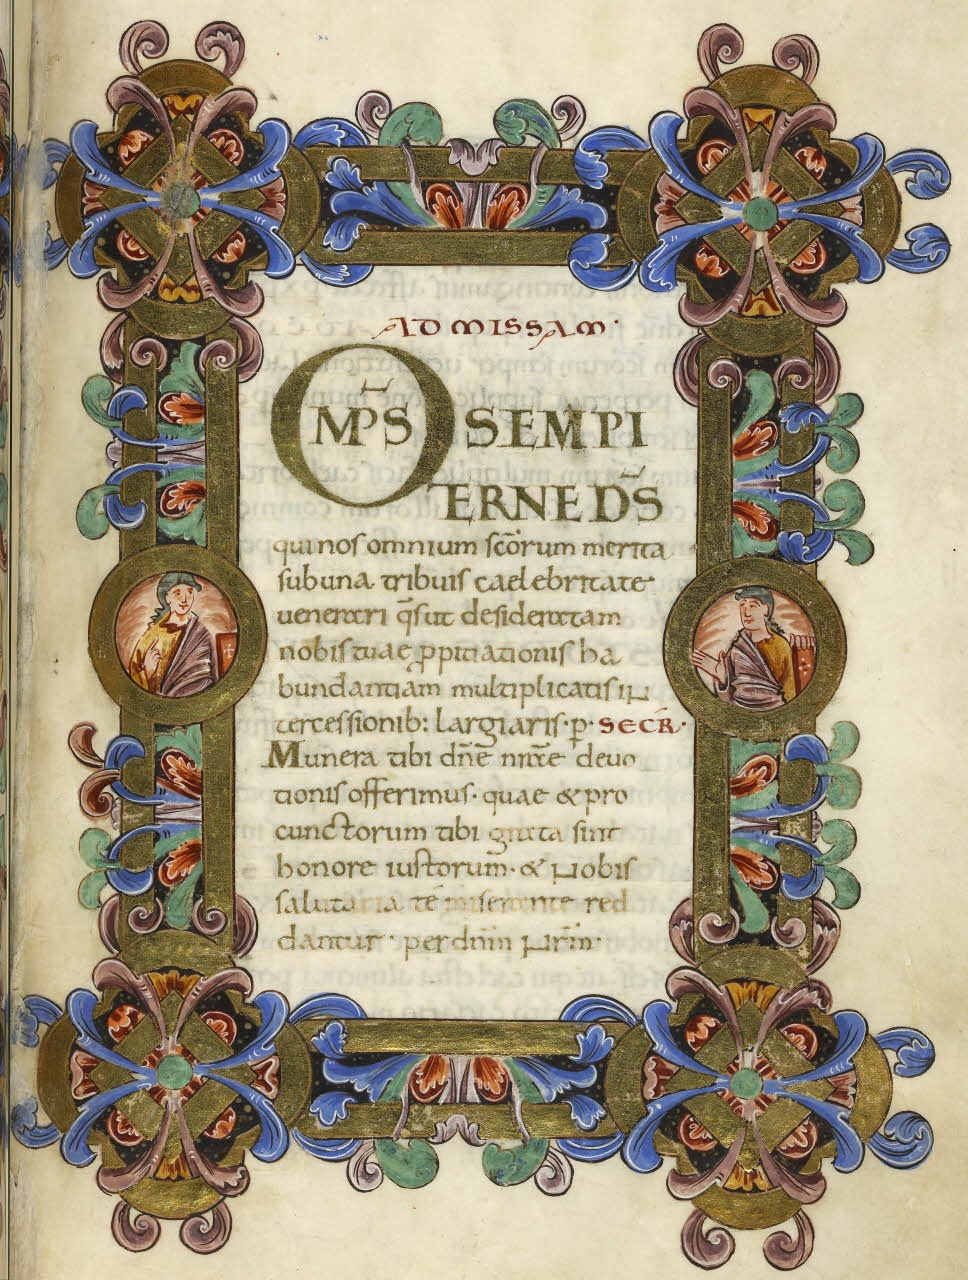 AD MISSAM·
OMPS SEMPI
TERNE DS
qui nos omnium scorum merita
sub una tribuis caelebritate
venerari qsut desideratam
nobis tuae ppitiationis ha
bundantiam multiplicatis in
tercessionib: largiaris· p· SECR·
Munera tibi dne nrae devo
tionis offerimus· quae & pro
cunctorum tibi grata sint
honore iustorum· & nobis
salutaria te miserante red
dantur· per dnm nrm·